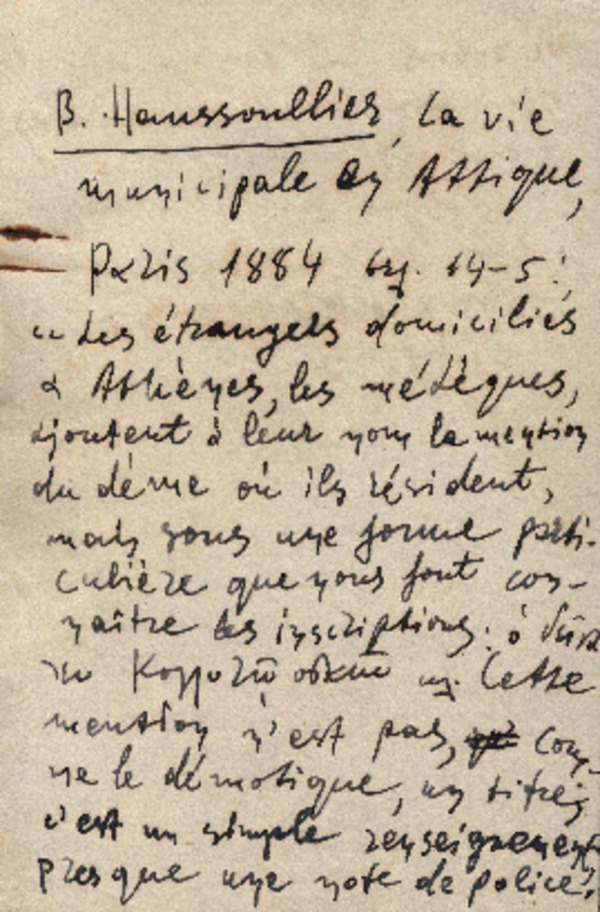 B. Haussoullier, la vie
municipale en Attique,
Paris 1884 σελ. 14-5:
"Les étrangers domiciliés
à Athènes, les métèques,
ajoutent à leur nom la mention
du dème où ils résident,
mais sous une forme parti-
culière que nous font con-
naître les inscriptions: ὁ δεῖνα
ἐν Κολλυτῷ οἰκῶν
Cette
mention n'est pas, com-
me le démotique, un titre;
c'est un simple renseignement
presque une note de police.